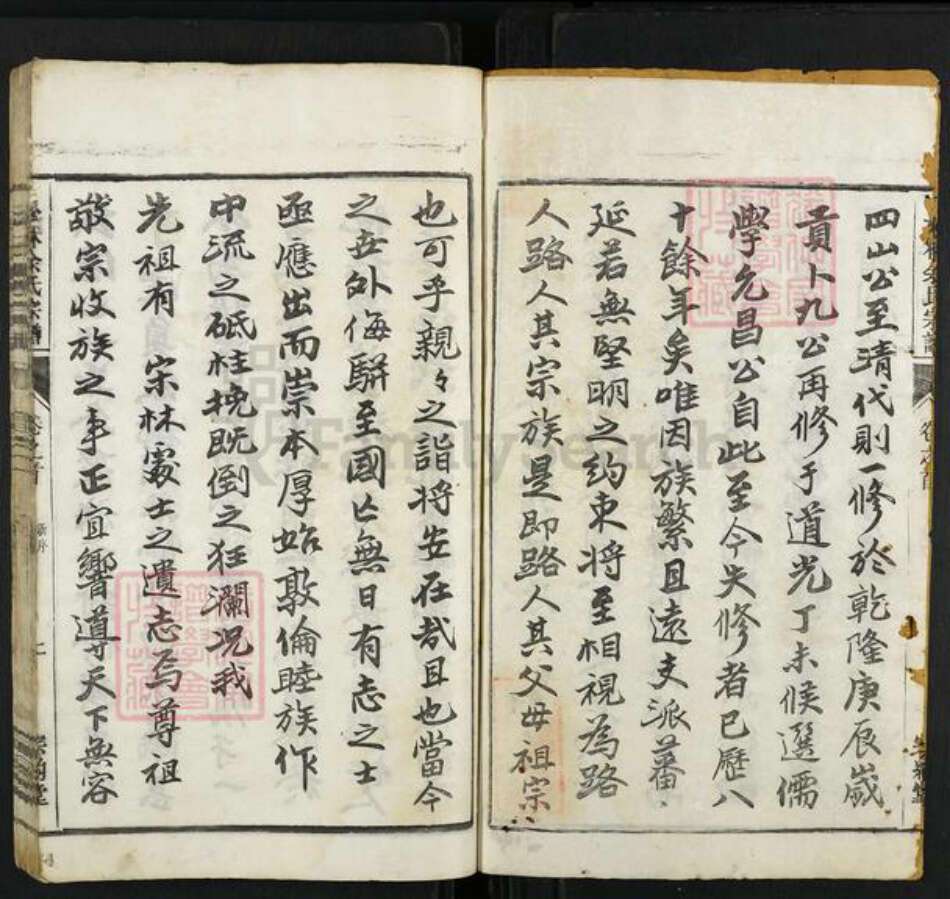 四山公至清代則一修於乾隆庚辰歲
貢卜九公再修于道光丁未候選儒
學允昌公自此至今失修者已歷八
十餘年矣唯因族繁且遠支派蕃
延若無堅明之約束將至相視為路
人路人其宗族是即路人其父母祖宗
也可乎親々之誼將安在哉且也當今
之世外侮駢至國亡無日有志之士
亟應出而崇本厚始敦倫睦族作
中流之砥柱挽既倒之狂瀾况我
先祖有 宗林處士之遺志焉尊祖
敬宗收族之事正宜響遵天下無容
徐氏宗譜
FamilySearch